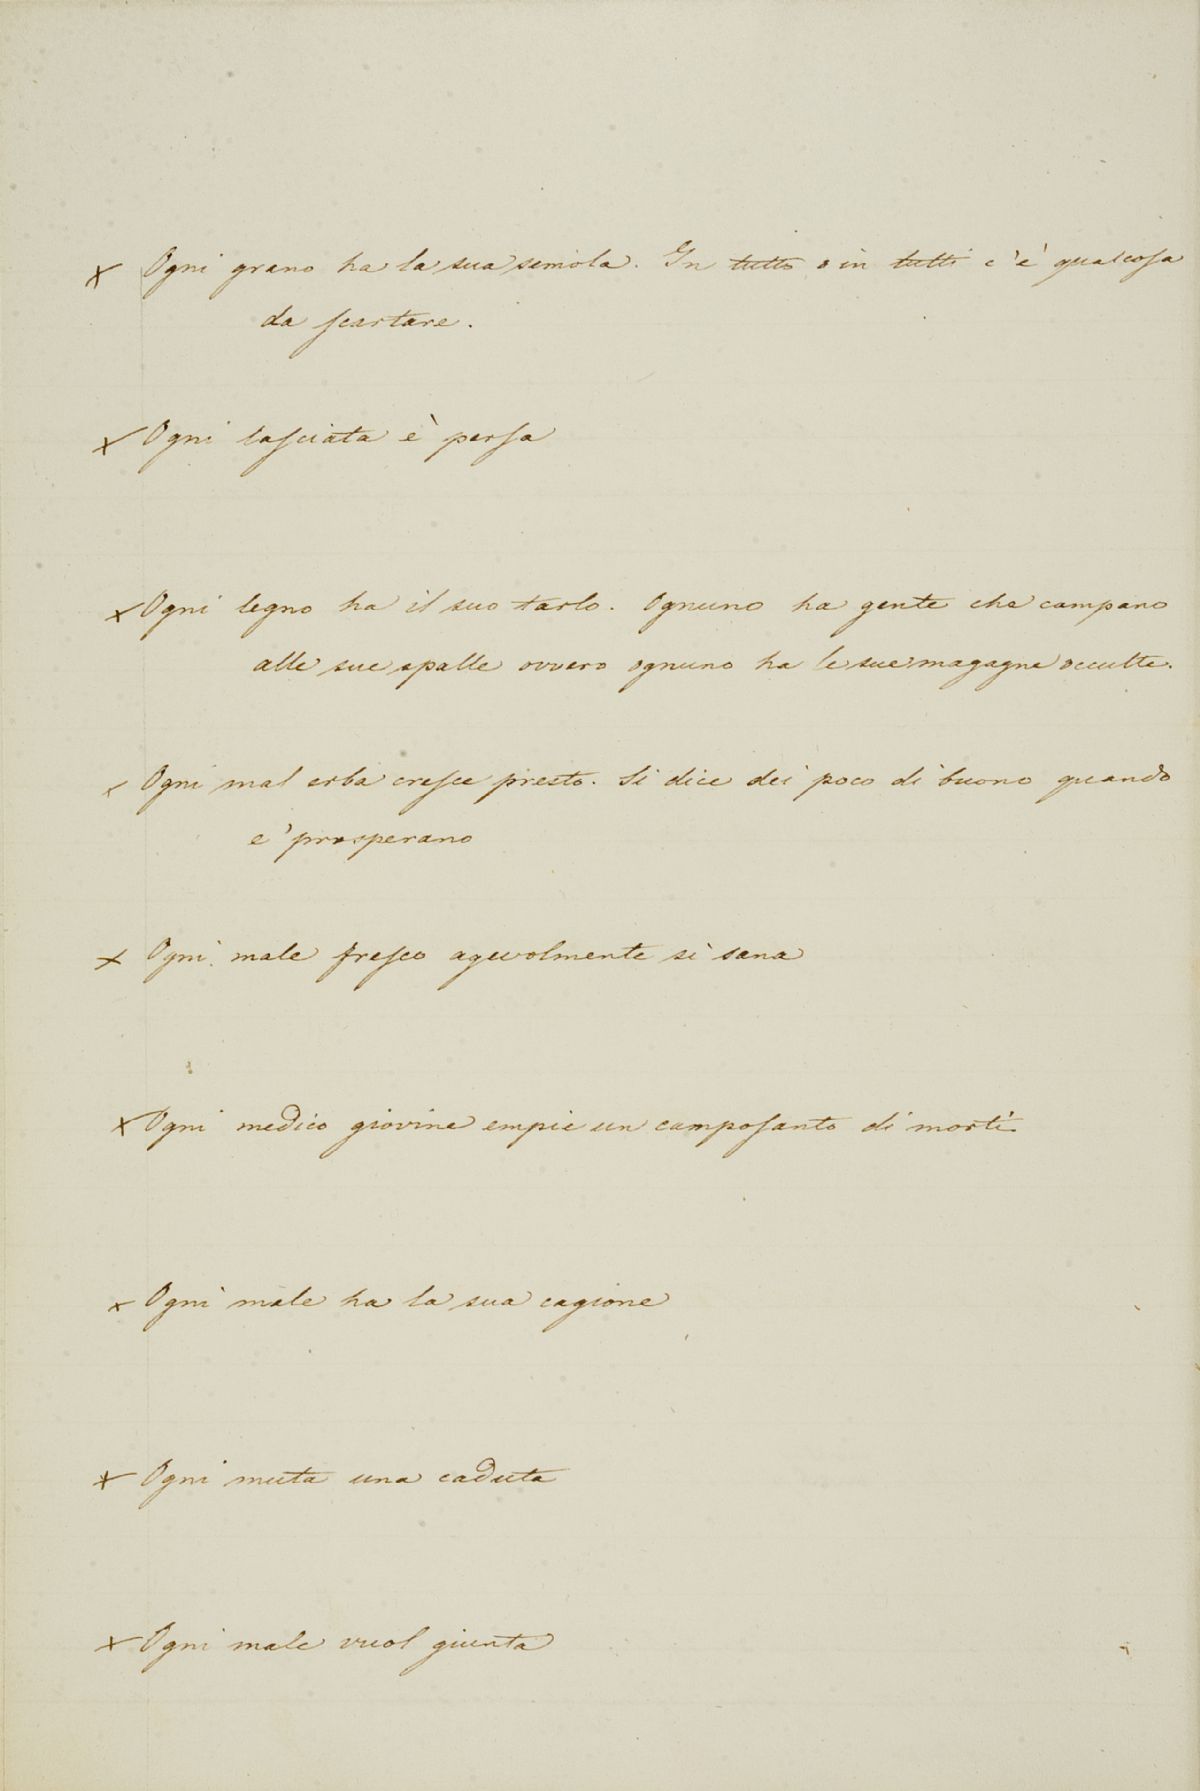 × Ogni grano ha la sua semola. In tutto o in tutti c'è qualcosa
da scartare.
× Ogni lasciata è persa
× Ogni legno ha il suo tarlo. Ognuno ha gente che campano
alle sue spalle ovvero ognuno ha le sue magagne occulte.
× Ogni mal erba cresce presto. Si dice dei poco di buono quando
e' prosperano
× Ogni male fresco agevolmente si sana
× Ogni medico giovine empie un camposanto di morti.
× Ogni male ha la sua cagione
× Ogni muta una caduta
× Ogni male vuol giunta